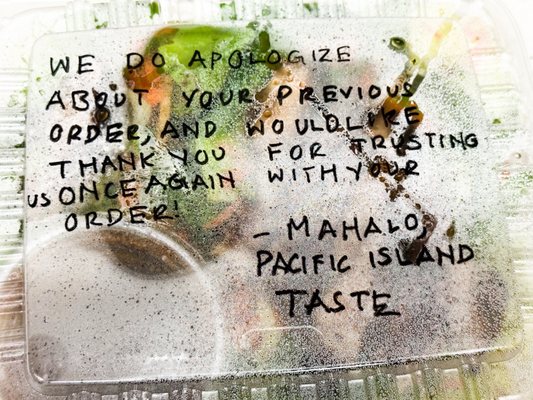 WE DO APOLOGIZE
ABOUT YOUR PREVIOUS
ORDER, AND WOULD LIKE
THANK YOU FOR TRUSTING
US ONCE AGAIN WITH YOUR
ORDER!
- MAHALO,
PACIFIC ISLAND
TASTE